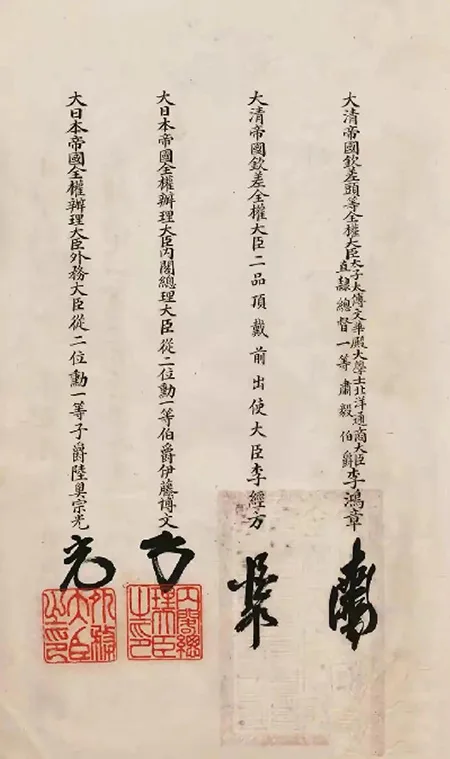 大清帝國欽差頭等全權大臣太子太傅文華殿大學士北洋通商大臣直隸總督一等肅毅伯爵李鴻章
大清帝國欽差全權大臣二品頂戴前出使大臣李經方
大日本帝國全權辦理大臣內閣總理大臣從二位勳一等伯爵伊藤博文
大日本帝國全權辦理大臣外務大臣從二位勳一等子爵陸奧宗光
光
內閣總理大臣之印
外務大臣之印